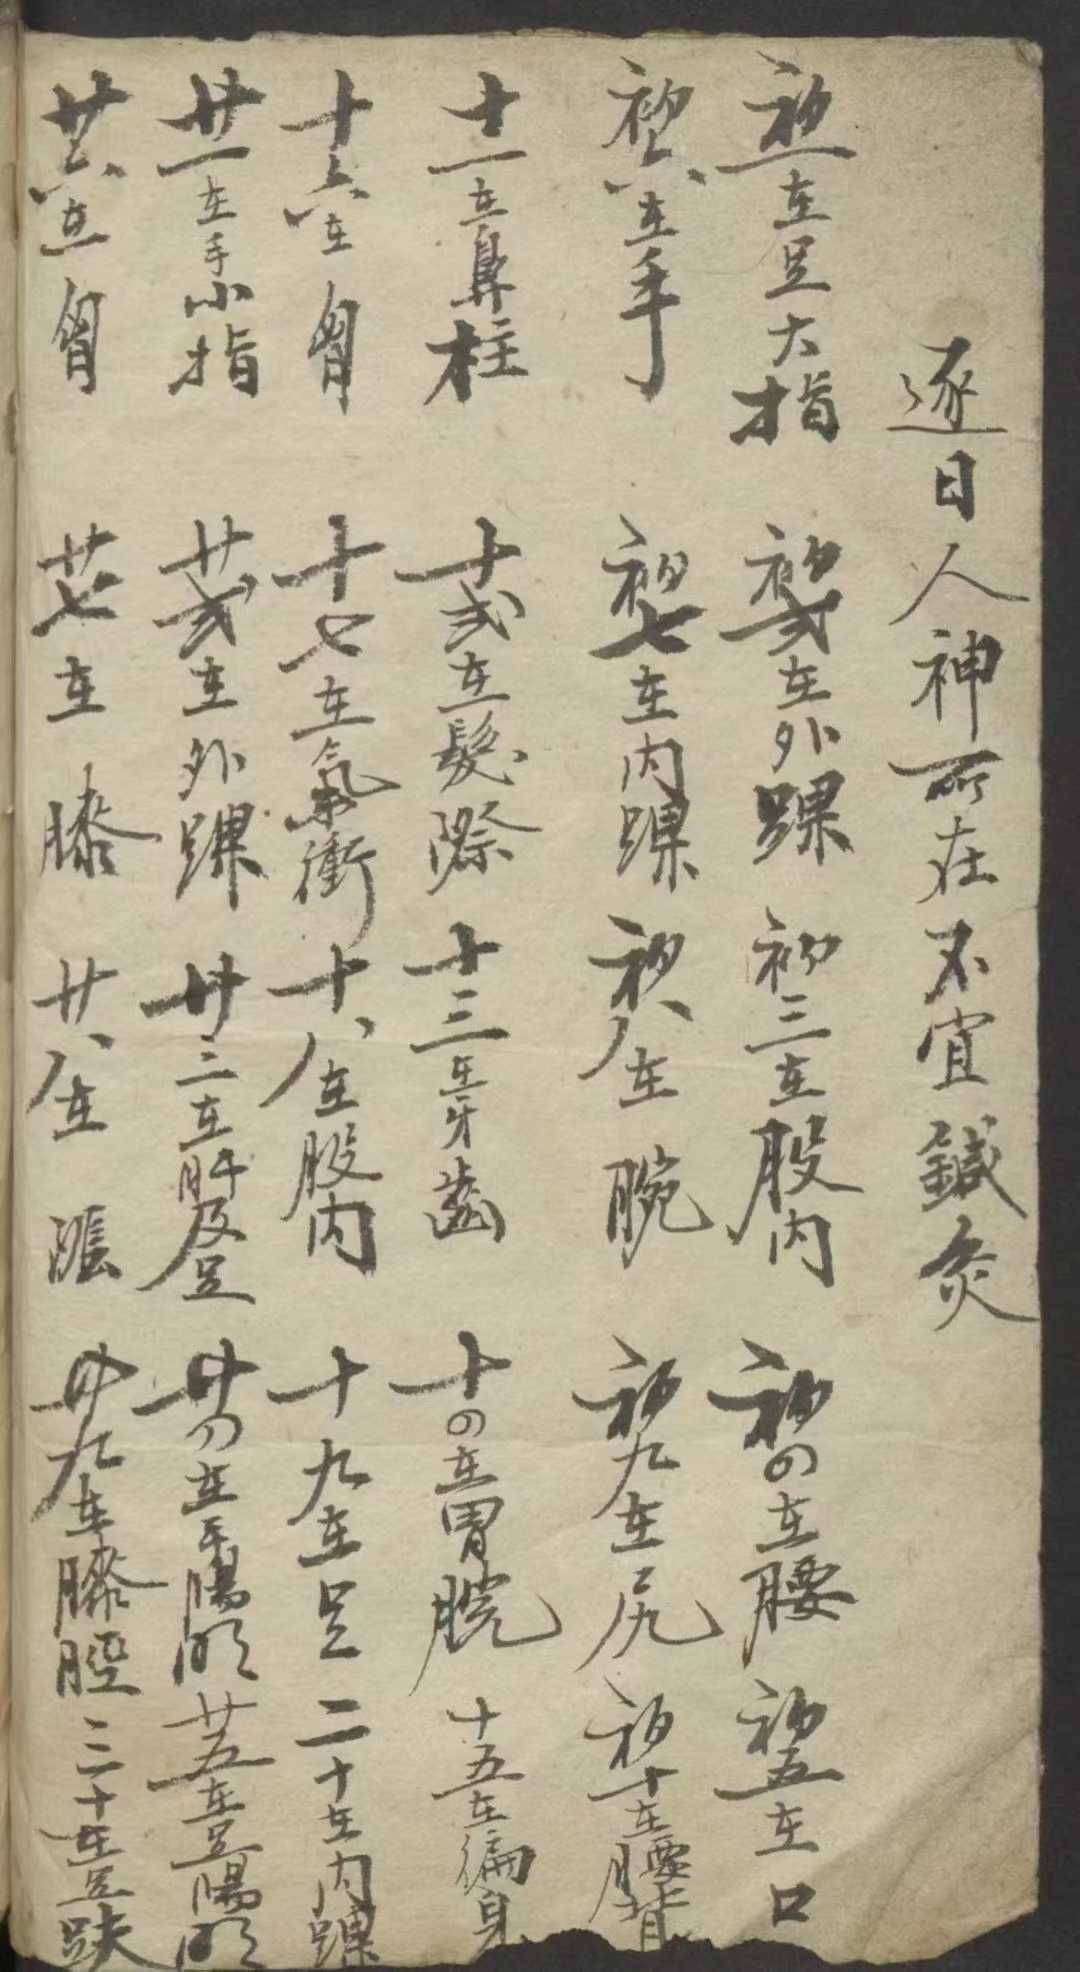 逐日人神所在不宜鍼灸
初一在足大指 初弍在外踝 初三在股内 初四在腰 初五在口
初六在手 初七在内踝 初八在腕 初九在尻 初十在腰背
十一在鼻柱 十弍在髮際 十三在牙齒 十四在胃脘 十五在徧身
十六在胷 十七在氣衝 十八在股内 十九在足 二十在内踝
廿一在手小指 廿弍在外踝 廿三在肝及足 廿四在手陽明 廿五在足陽明
廿六在胷 廿七在膝 廿八在 廿九在膝脛 三十在足趺